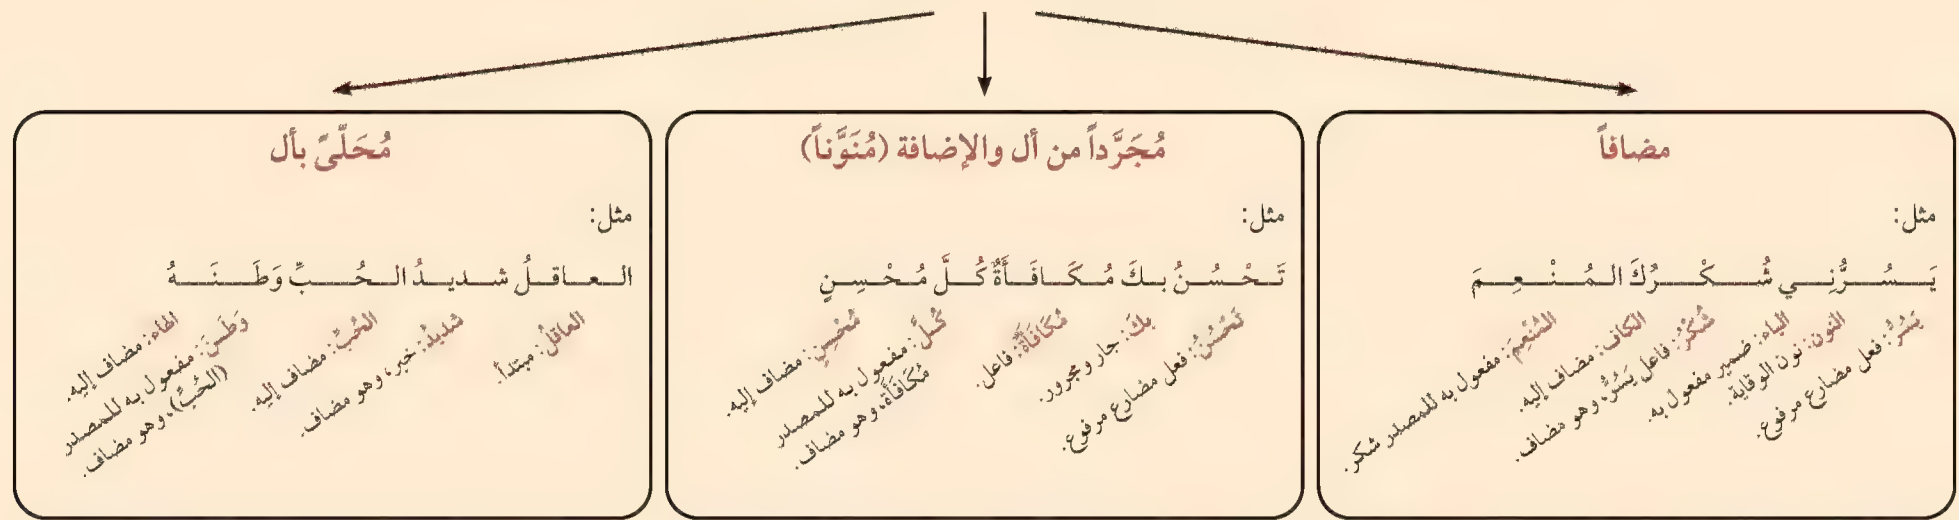 مضافاً
مثل:
يَسُرُّنِي شُكْرُكَ المُنْعِمَ
يَسُرُّ: فعل مضارع مرفوع.
النون: نون الوقاية.
الياء: ضمير مفعول به.
شُكْرُ: فاعل يَسُرُّ، وهو مضاف.
الكاف: مضاف إليه.
المُنْعِمَ: مفعول به للمصدر شكر.
مُجَرَّداً من أل والإضافة (مُنَوَّناً)
مثل:
تَحْسُنُ بكَ مُكَافَأَةٌ كُلَّ مُحْسِنٍ
تَحْسُنُ: فعل مضارع مرفوع.
بكَ: جار ومجرور.
مُكَافَأَةٌ: فاعل.
كُلَّ: مفعول به للمصدر
مُكَافَأَة، وهو مضاف.
مُحْسِنٍ: مضاف إليه.
مُحَلّىً بأل
مثل:
العاقلُ شديدُ الحُبِّ وَطَنَهُ
العاقلُ: مبتدأ.
شديدُ: خبر، وهو مضاف.
الحُبِّ: مضاف إليه.
وَطَنَ: مفعول به للمصدر
(الحُبِّ)، وهو مضاف.
الهاء: مضاف إليه.